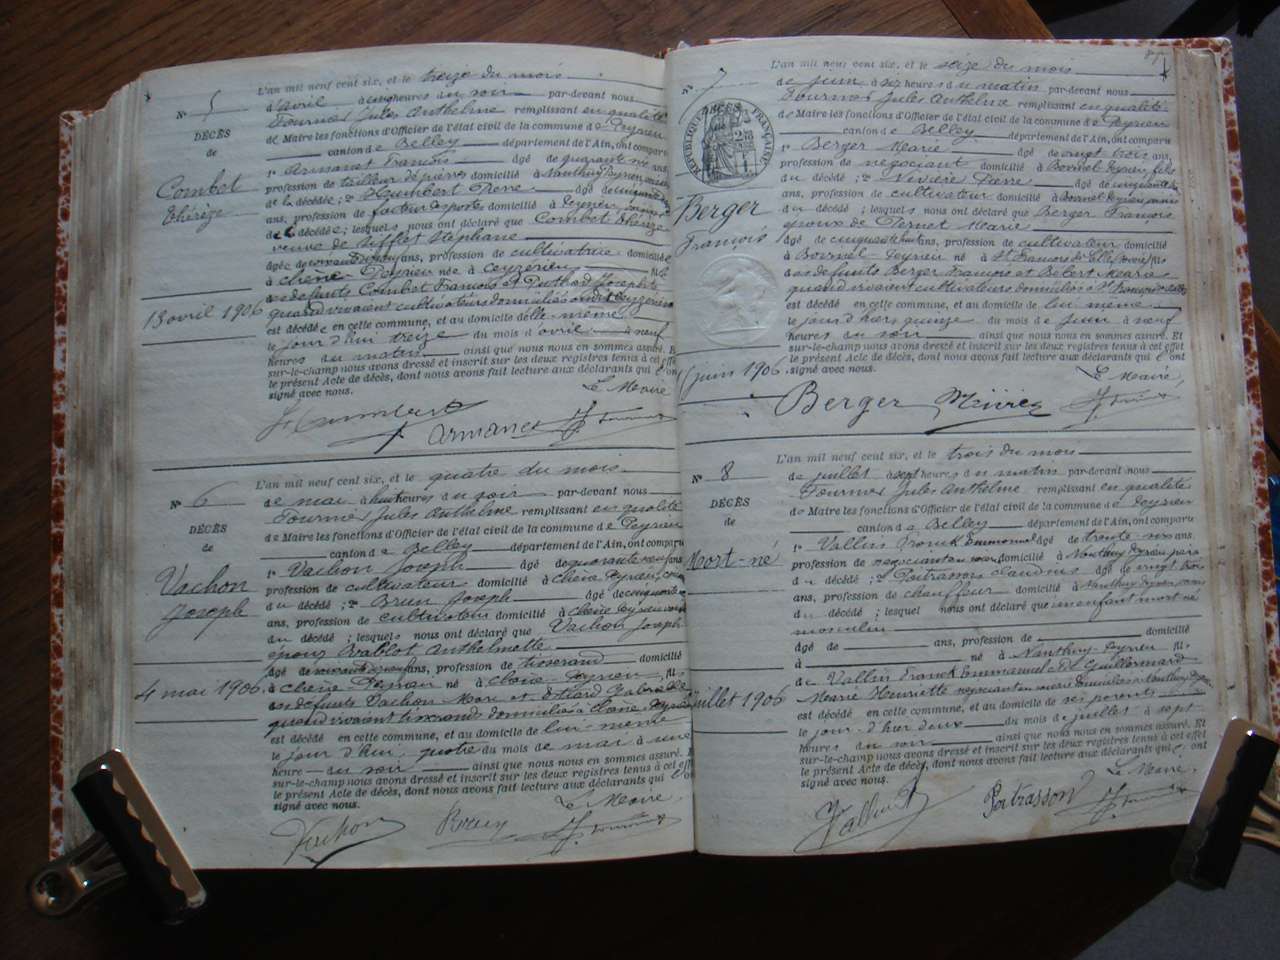 N° 5
DÉCÈS
de
Combet
Thérèze
13 avril 1906
L'an mil neuf cent six, et le treize du mois
d'avril à cinq heures du soir par-devant nous
Fournier Jules Anthelme remplissant en qualité
de Maire les fonctions d'Officier de l'état civil de la commune de Peyrieu
canton de Belley département de l'Ain, ont comparu
1° Armanet François âgé de quarante six ans,
profession de tailleur de pierre domicilié à Nanthuy Peyrieu
de la décédée; 2° Humbert Pierre âgé de
ans, profession de facteur des postes domicilié à Peyrieu
de la décédée; lesquels nous ont déclaré que Combet Thérèze
veuve de Sifflet Stéphane
âgée de ans, profession de cultivatrice domiciliée
à Chêne Peyrieu née à Ceyzérieu fille
des defunts Combet François et Puthod Josephte
quand vivaient cultivateurs domiciliés audit Ceyzérieu
est décédée en cette commune, et au domicile d'elle-même
le jour d'hui treize du mois d'avril à neuf
heures du matin ainsi que nous nous en sommes assuré. Et
sur-le-champ nous avons dressé et inscrit sur les deux registres tenus à cet effet
le présent Acte de décès, dont nous avons fait lecture aux déclarants qui l'ont
signé avec nous.
Le Maire
Humbert Armanet J. Fournier
N° 6
DÉCÈS
de
Vachon
Joseph
4 mai 1906
L'an mil neuf cent six, et le quatre du mois
de mai à huit heures du soir par-devant nous
Fournier Jules Anthelme remplissant en qualité
de Maire les fonctions d'Officier de l'état civil de la commune de Peyrieu
canton de Belley département de l'Ain, ont comparu
1° Vachon Joseph âgé de quarante neuf ans
profession de cultivateur domicilié à Chêne Peyrieu,
du décédé; 2° Brun Joseph âgé de
ans, profession de cultivateur domicilié à Chêne Peyrieu
du décédé; lesquels nous ont déclaré que Vachon Joseph
époux Vallot Anthelmette
âgé de ans, profession de tisserand domicilié
à Chêne Peyrieu né à Chêne Peyrieu fils
des defunts Vachon Marc et Gabrielle
quand vivaient tisserands domiciliés à Chêne Peyrieu
est décédé en cette commune, et au domicile de lui même
le jour d'hui quatre du mois de mai à une
heure du soir ainsi que nous nous en sommes assuré. Et
sur-le-champ nous avons dressé et inscrit sur les deux registres tenus à cet effet
le présent Acte de décès, dont nous avons fait lecture aux déclarants qui l'ont
signé avec nous.
Le Maire,
Vachon Brun J. Fournier
N° 7
RÉPUBLIQUE FRANÇAISE
DÉCÈS
Berger
François
juin 1906
L'an mil neuf cent six, et le seize du mois
de juin à six heures du matin par-devant nous
Fournier Jules Anthelme remplissant en qualité
de Maire les fonctions d'Officier de l'état civil de la commune de Peyrieu
canton de Belley département de l'Ain, ont comparu
1° Berger Marié âgé de vingt trois ans,
profession de négociant domicilié à Bovinel Peyrieu fils
du décédé; 2° Pierre âgé de cinquante
ans, profession de cultivateur domicilié à Bovinel Peyrieu
du décédé; lesquels nous ont déclaré que Berger François
époux de Pernet Marie
âgé de cinquante huit ans, profession de cultivateur domicilié
à Bovinel Peyrieu né à St François de Sales Savoie fils
des defunts Berger François et Marie
quand vivaient cultivateurs domiciliés à St François de Sales
est décédé en cette commune, et au domicile de lui même
le jour d'hier quinze du mois de juin à neuf
heures du soir ainsi que nous nous en sommes assuré. Et
sur-le-champ nous avons dressé et inscrit sur les deux registres tenus à cet effet
le présent Acte de décès, dont nous avons fait lecture aux déclarants qui l'ont
signé avec nous.
Le Maire,
Berger J. Fournier
N° 8
DÉCÈS
de
Mort-né
juillet 1906
L'an mil neuf cent six, et le trois du mois
de juillet à sept heures du matin par-devant nous
Fournier Jules Anthelme remplissant en qualité
de Maire les fonctions d'Officier de l'état civil de la commune de Peyrieu
canton de Belley département de l'Ain, ont comparu
1° Vallin Franck Emmanuel âgé de trente-six ans,
profession de négociant domicilié à Nanthuy Peyrieu père
du décédé; 2° Poitrasson Claudius âgé de vingt trois
ans, profession de chauffeur domicilié à Nanthuy Peyrieu
du décédé; lesquel nous ont déclaré que un enfant mort né
masculin
âgé de ans, profession de domicilié
à né à Nanthuy Peyrieu fils
de Vallin Franck Emmanuel et Guillermard
Marie Henriette négociant domiciliés à Nanthuy Peyrieu
est décédé en cette commune, et au domicile de ses parents
le jour d'hier deux du mois de juillet à sept
heures du soir ainsi que nous nous en sommes assuré. Et
sur-le-champ nous avons dressé et inscrit sur les deux registres tenus à cet effet
le présent Acte de décès, dont nous avons fait lecture aux déclarants qui l'ont
signé avec nous.
Le Maire.
Vallin Poitrasson J. Fournier